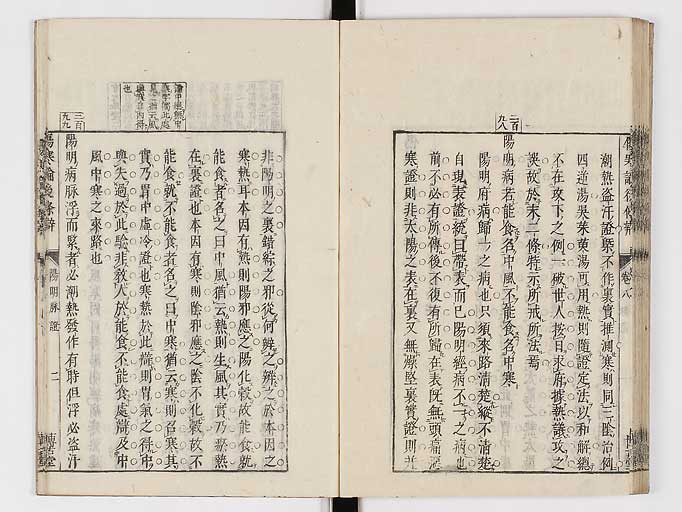 潮熱盜汗證槩不作裏實推測寒則同三陰治例
四逆湯吳茱萸湯可用熱則隨證定法以和解總
不在攻下之例一破世人按日求府據熱議攻之
誤故於末二條特示所戒所法焉
三百九八
陽明病若能食名中風不能食名中寒
陽明府病歸一之病也只須來路清楚縱不清楚
自現表證總曰帶表而已陽明經病不一之病也
前不必有所傳後不復有所歸在表旣無頭痛惡
寒證則非太陽之表在裏又無燥堅裏實證則幷
卷八
非陽明之裏錯綜之邪從何辨之辨之於本因之
寒熱耳本因有熱則陽邪應之陽化穀故能食就
能食者名之曰中風猶云熱則生風其實乃瘀熱
在裏證也本因有寒則陰邪應之陰不化穀故不
能食就不能食者名之曰中寒猶云寒則召寒其
實乃胃中虛冷證也寒熱於此辨則胃氣之得中
與失過於此驗非敎人於能食不能食處辯及中
風中寒之來路也
三百九九
陽明病脉浮而緊者必潮熱發作有時但浮必盜汗
傷寒論後條辨
陽明脉證
二